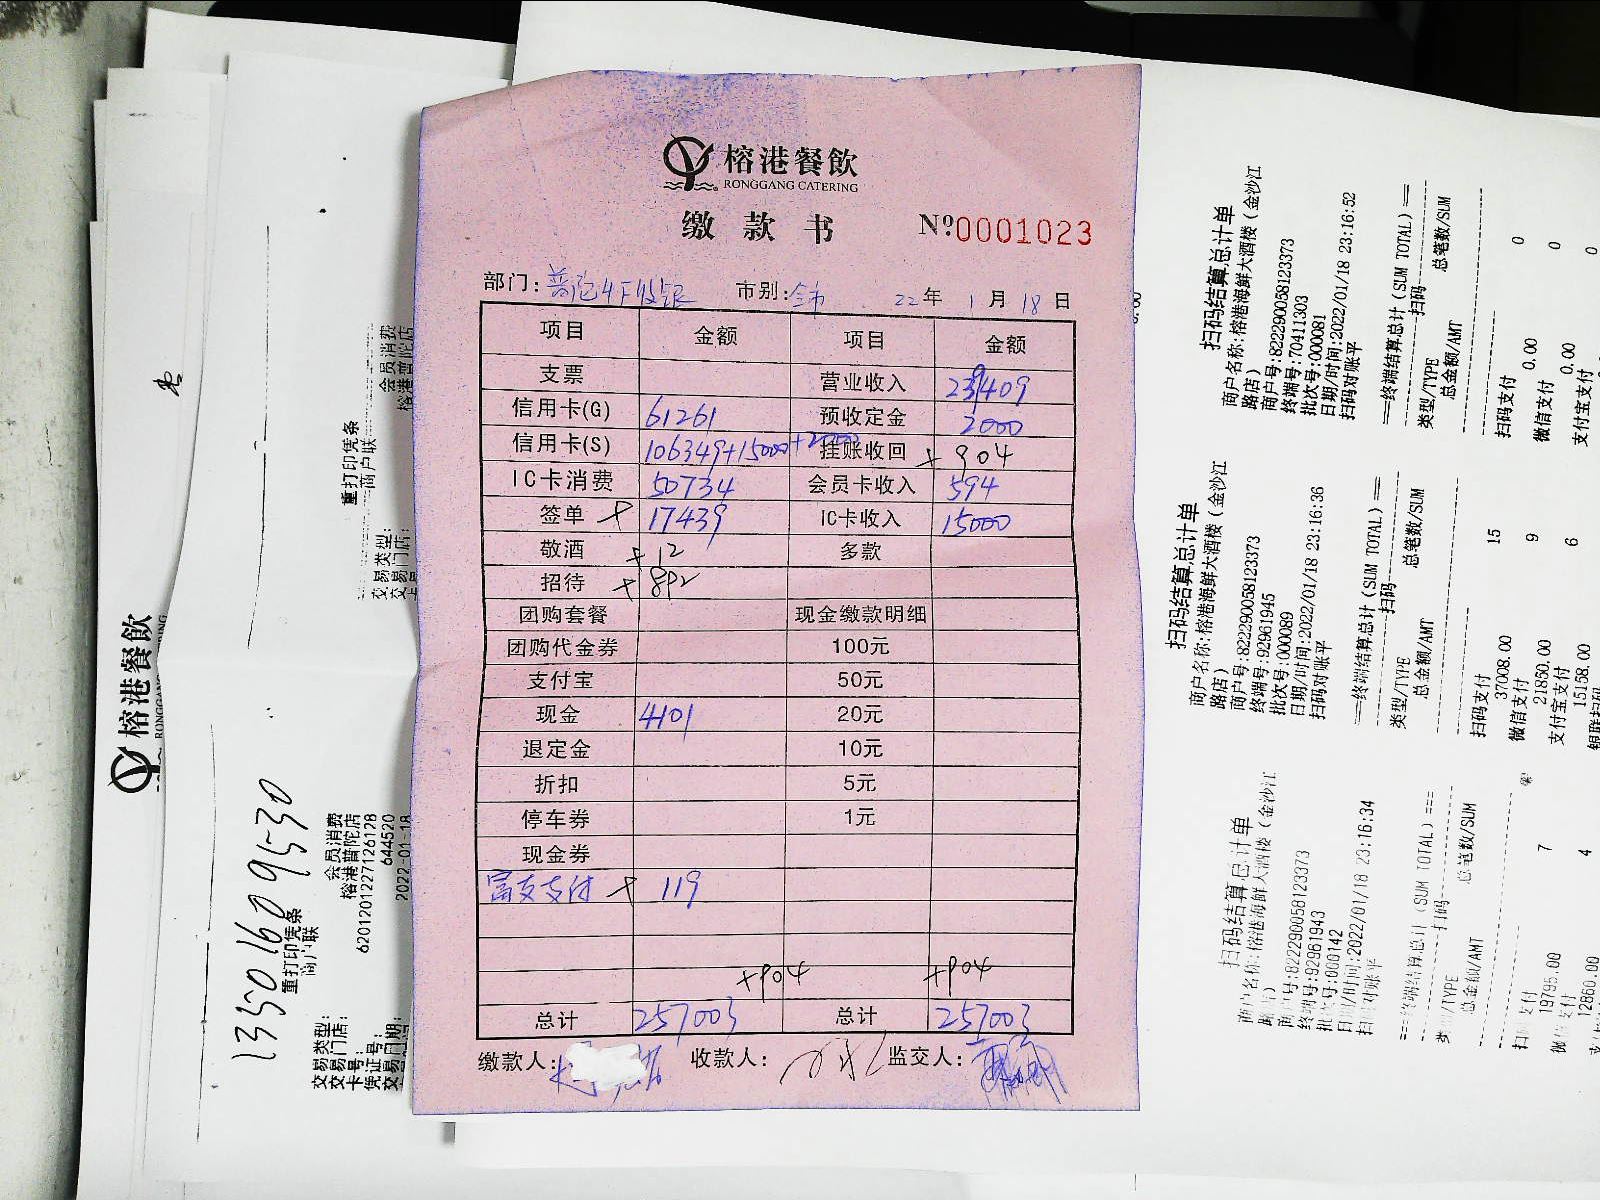 榕港餐飲
RONGGANG CATERING
缴款书 №0001023
部门:普陀4F收银 市别:全市 22年1月18日
项目 金额 项目 金额
支票 营业收入 239409
信用卡(G) 61261 预收定金 2000
信用卡(S) 106349+15000+2000 挂账收回 +904
IC卡消费 50734 会员卡收入 594
签单 17439 IC卡收入 15000
敬酒 +12 多款
招待 +892
团购套餐 现金缴款明细
团购代金券 100元
支付宝 50元
现金 4101 20元
退定金 10元
折扣 5元
停车券 1元
现金券
富友支付 + 119
+904 +904
总计 257003 总计 257003
缴款人: 收款人: 监交人:
榕港餐飲
13501609530
重打印凭条
商户联
会员消费
榕港普陀店
交易类型:
交易门店:
重打印凭条
商户联
交易类型: 会员消费
交易门店: 榕港普陀店
卡号: 6201201227126128
凭证号: 644520
交易日期: 2022-01-18
扫码结算总计单
商户名称:榕港海鲜大酒楼(金沙江
路店)
商户号:822290058123373
终端号:70411303
批次号:000081
日期/时间:2022/01/18 23:16:52
扫码对账平
==终端结算总计(SUM TOTAL)==
扫码
类型/TYPE 总笔数/SUM
总金额/AMT
扫码支付 0
0.00
微信支付 0
0.00
支付宝支付 0
扫码结算总计单
商户名称:榕港海鲜大酒楼(金沙江
路店)
商户号:822290058123373
终端号:92961945
批次号:000089
日期/时间:2022/01/18 23:16:36
扫码对账平
==终端结算总计(SUM TOTAL)==
扫码
类型/TYPE 总笔数/SUM
总金额/AMT
扫码支付 15
37008.00
微信支付 9
21850.00
支付宝支付 6
15158.00
扫码结算总计单
商户名称:榕港海鲜大酒楼(金沙江
路店)
商户号:822290058123373
终端号:92961943
批次号:000142
日期/时间:2022/01/18 23:16:34
扫码对账平
==终端结算总计(SUM TOTAL)==
扫码
类型/TYPE 总笔数/SUM
总金额/AMT
扫码支付 7
19795.00
微信支付 4
12860.00